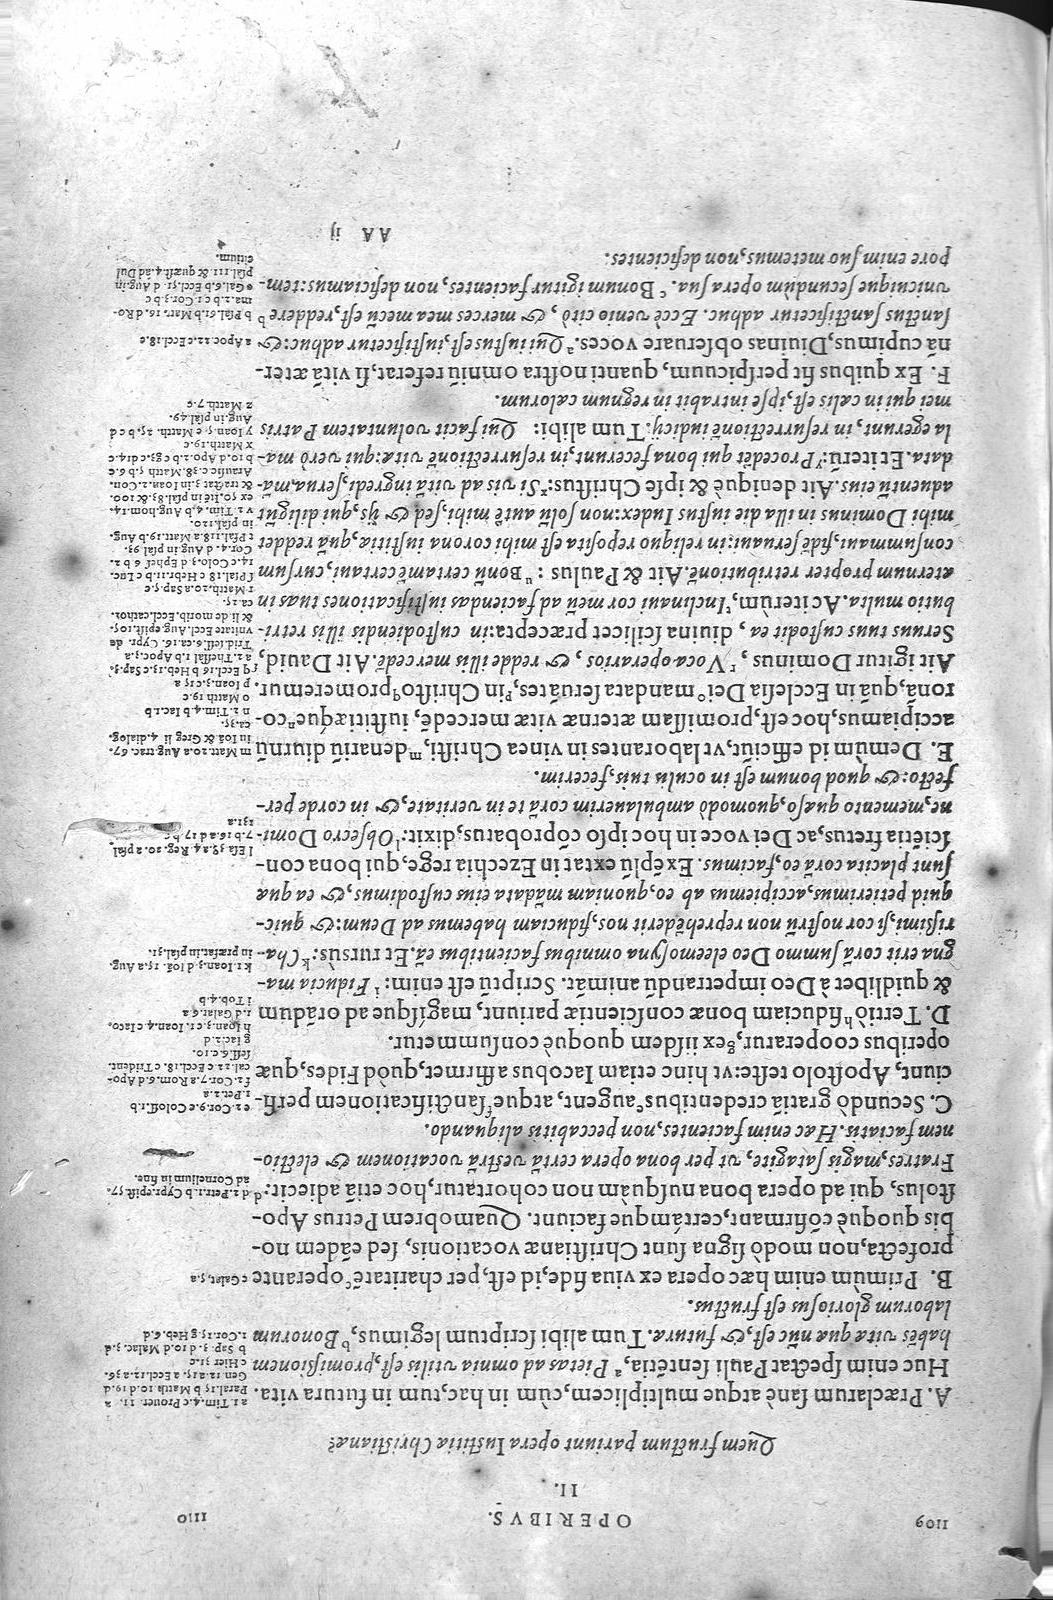 1109
OPERIBVS.
1110
II.
Quem fructum pariunt opera Iustitiæ Christianæ?
A. Præclarum sanè atque multiplicem, cùm in hac, tum in futura vita.
Huc enim spectat Pauli sentētia, ᵃ Pietas ad omnia vtilis est, promissionem
habēs vitæ quæ nūc est, & futuræ. Tum alibi scriptum legimus, ᵇ Bonorum
laborum gloriosus est fructus.
B. Primùm enim hæc opera ex viua fide, id est, per charitatē ᶜ operante
profecta, non modò signa sunt Christianæ vocationis, sed eādem no-
bis quoquè cōfirmant, certámque faciunt. Quamobrem Petrus Apo-
stolus, qui ad opera bona nusquàm non cohortatur, hoc etiā adiecit: ᵈ
Fratres, magis satagite, vt per bona opera certā vestrā vocationem & electio-
nem faciatis. Hæc enim facientes, non peccabitis aliquando.
C. Secundò gratiā credentibus ᵉ augent, atque ᶠ sanctificationem perfi-
ciunt, Apostolo teste: vt hinc etiam Iacobus affirmet, quòd Fides, quæ
operibus cooperatur, ᵍ ex iisdem quoquè consummetur.
D. Tertiò ʰ fiduciam bonæ conscientiæ pariunt, magísque ad orādum
& quidlibet à Deo impetrandū animāt. Scriptū est enim: ⁱ Fiducia ma-
gna erit corā summo Deo eleemosyna omnibus facientibus eā. Et rursùs: ᵏ Cha-
rissimi, si cor nostrū non reprehēderit nos, fiduciam habemus ad Deum: & quic-
quid petierimus, accipiemus ab eo, quoniam mādata eius custodimus, & ea quæ
sunt placita corā eo, facimus. Exēplū extat in Ezechia rege, qui bona con-
sciētia fretus, ac Dei voce in hoc ipso cōprobatus, dixit: ˡ Obsecro Domi-
ne, memento quæso, quomodò ambulauerim corā te in veritate, & in corde per-
fecto: & quod bonum est in oculis tuis, fecerim.
E. Demùm id efficiūt, vt laborantes in vinea Christi, ᵐ denariū diurnū
accipiamus, hoc est, promissam æternæ vitæ mercedē, iustitiæque ⁿ co-
ronā, quā in Ecclesia Dei ᵒ mandata seruātes, ᵖ in Christo ᑫ promeremur.
Ait igitur Dominus, ʳ Voca operarios, & redde illis mercedē. Ait Dauid, ˢ
Seruus tuus custodit ea, diuina scilicet præcepta: in custodiendis illis retri-
butio multa. Ac iterùm, ᵗ Inclinaui cor meū ad faciendas iustificationes tuas in
æternum propter retributionē. Ait & Paulus: ᵘ Bonū certamē certaui, cursum
consummaui, fidē seruaui: in reliquo reposita est mihi corona iustitiæ, quā reddet
mihi Dominus in illa die iustus Iudex: non solū autē mihi, sed & ijs, qui diligūt
aduentū eius. Ait deniquè & ipse Christus: ˣ Si vis ad vitā ingredi, serua mā-
data. Et iterū: ʸ Procedēt qui bona fecerunt, in resurrectionē vitæ: qui verò ma-
la egerunt, in resurrectionē iudicij. Tum alibi: ᶻ Qui facit voluntatem Patris
mei qui in cælis est, ipse intrabit in regnum cælorum.
F. Ex quibus sit perspicuum, quanti nostra omniū referat, si vitā æter-
nā cupimus, Diuinas obseruare voces. ᵃ Qui iustus est, iustificetur adhuc: &
sanctus sanctificetur adhuc. Eccè venio citò, & merces mea mecū est, reddere ᵇ
vnicuique secundùm opera sua. ᶜ Bonum igitur facientes, non deficiamus: tem-
pore enim suo metemus, non deficientes.
AA ij
a 1. Tim. 4. c Prouer. 11. a
Paral. 15 b Matth 10. d 19. d
Gen 12. a 15. a Eccl. 12. a 36.
c Hier 31. c
b Sap. 3. d 10. d Malac. 3. d
1. Cor. 15. g Heb. 6. d
c Galat. 5. a
d 2. Petr. 1. b Cypr. epist. 57.
ad Cornelium in fine.
e 2. Cor. 9. c Coloss. 1. b
1. Pet. 2. a
f 2. Cor. 7. a Rom. 6. d Apo-
cal 22 c Eccl. 18. c Trident.
sess. 6. c. 10.
g Iac. 2. d
h Ioan. 3. c 1. Ioan. 4. c Iaco.
1. d Galat. 6. a
i Tob. 4. b
k 1. Ioan. 3 d Iob. 15. a Aug.
in præfat. in psal. 31.
l Esa 38. a 4. Reg. 20. a psal.
7. b 16. a d 17. b c
131. a
m Matt. 20. a Aug. trac. 67.
in Ioā & Greg li. 4. dialog.
ca. 35.
n 2. Tim. 4. b Iac. 1. b
o Matth 19. c
p Ioan. 3. c 15 a
q Eccl. 16 b Heb. 13. c Sap. 3.
a 2. Thessal 1. b Apoc. 3. a
Trid. sess. 6. ca. 16. Cypr. de
vnitate Eccl. Aug. epist. 105.
& li. de morib. Eccl. cathol.
ca. 25.
r Matth. 20. a Sap. 5. c
s Psal. 18 c Hebr. 11. b c Luc.
14. c Colo. 3. d Ephes. 6 b 2.
Cor. 4. d Aug. in psal 93.
t Psal. 118. a Matt. 19. b Aug.
in psal. 120.
v 2. Tim. 4. b Aug. hom. 14.
ex 50. itē in psal. 83. & 100.
& tractat 3. in Ioan. 2. Con.
Arausic c. 38. Matth 5. b 6. c
b 10. d Apo. 2. b c g 3. c d 14. c
x Matth. 19. c
y Ioan. 5 c Matth. 25. b c d
Aug. in psal. 49.
z Matth. 7. c
a Apoc. 22. c Eccl. 18. c
b Psal. 61. b Matt. 16. d Ro-
ma. 2. b c 1. Cor. 3. b c
c Gal. 6. b Eccl. 51. d Aug. in
psal. 111 & quæst. 4. ad Dul
citium.